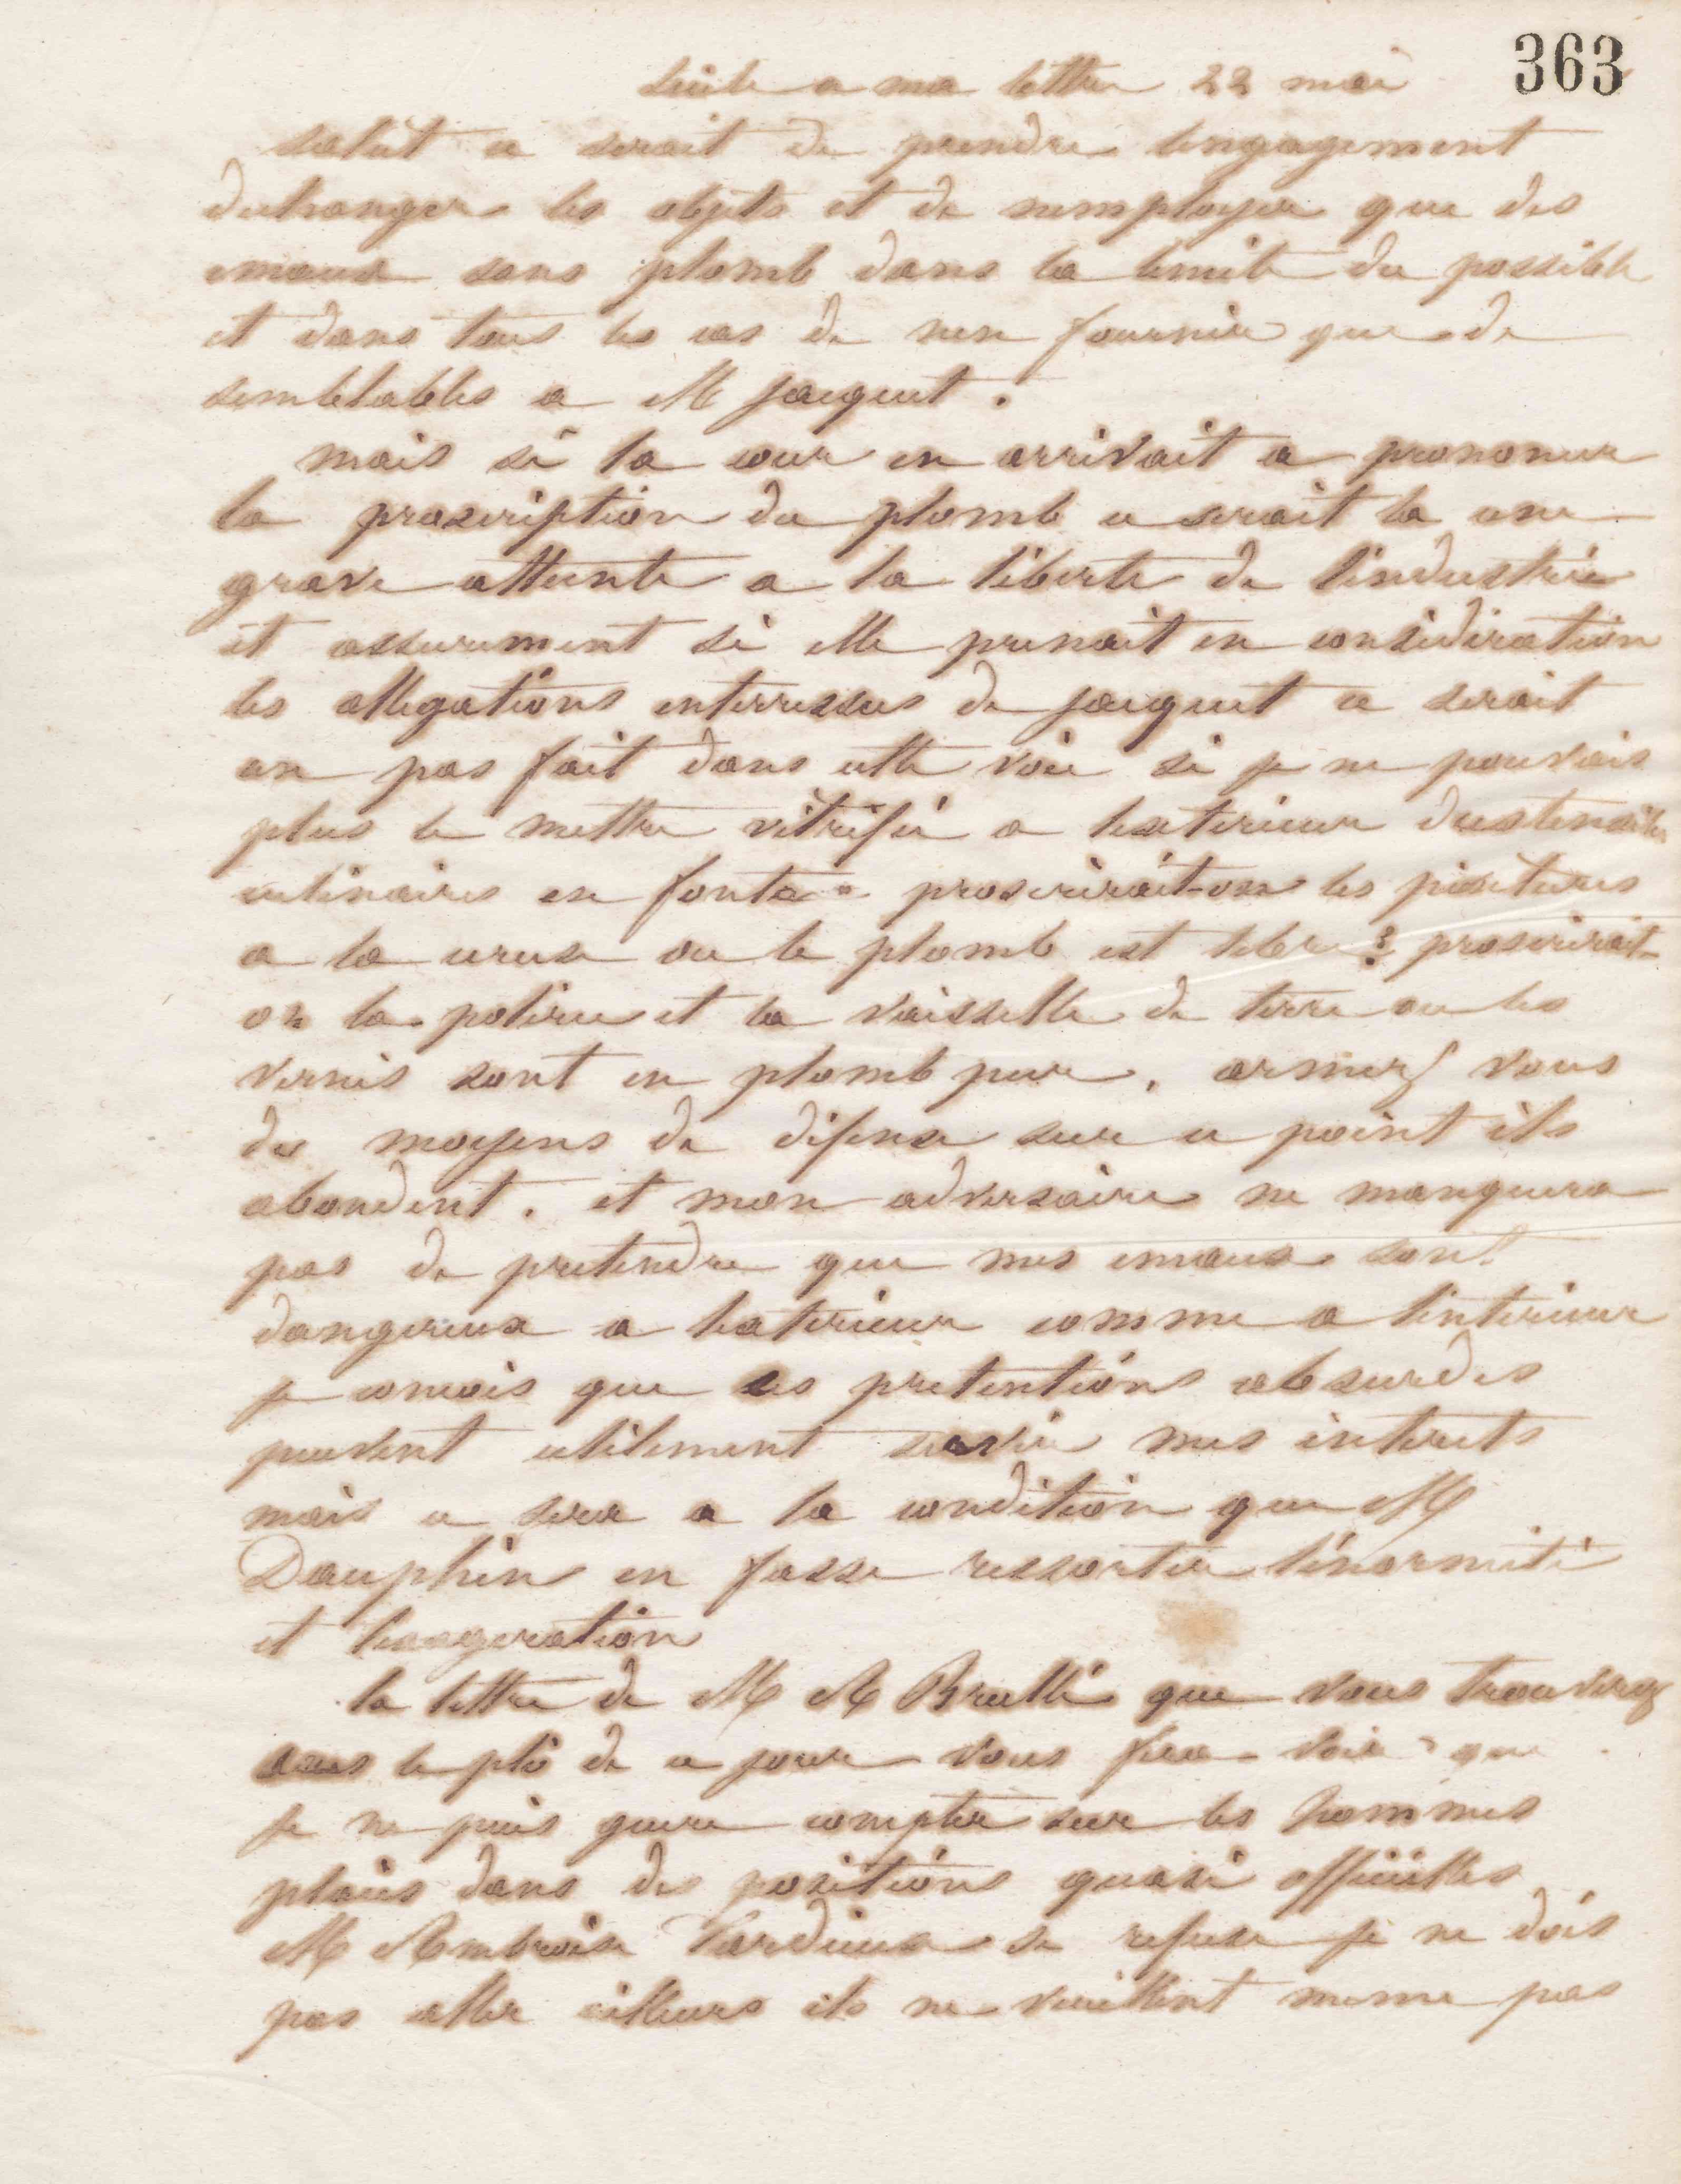 363
suite a ma lettre 22 mai
salut ce serait de prendre lengagement
detranger les objets et de nemployer que des
emaux sans plomb dans la limite du possible
et dans tous les cas de nen fournir que de
semblables a M Jacquet.
mais si la cour en arrivait a prononcer
la proscription du plomb ce serait la une
grave atteinte a la liberte de lindustrie
et assurement si elle prenait en consideration
les allegations interressees de jacquet ce serait
un pas fait dans cette voie si je ne pouvais
plus le mettre vitrifié a lexterieur dustensiles
culinaires en fonte proscrirait-on les peintures
a la ceruse ou le plomb est libre ? proscrirait-
on la poterie et la vaisselle de terre ou les
vernis sont en plomb pur. armez vous
des moyens de défense sur ce point ils
abondent. et mon adversaire ne manquera
pas de pretendre que mes emaux sont
dangereux a lexterieur comme a linterieur
je concois que ces pretentions absurdes
peuvent utilement servir mes interets
mais ce sera a la condition que M
Dauphin en fasse ressortir lénormité
et lexageration
la lettre de M A Brullé que vous trouverez
sous le pli de ce jour vous fera voir que
je ne puis guere compter sur les hommes
placés dans des positions quasi officielles
M Ambroise Tardieu se refuse je ne dois
pas aller ailleurs ils ne veuillent meme pas